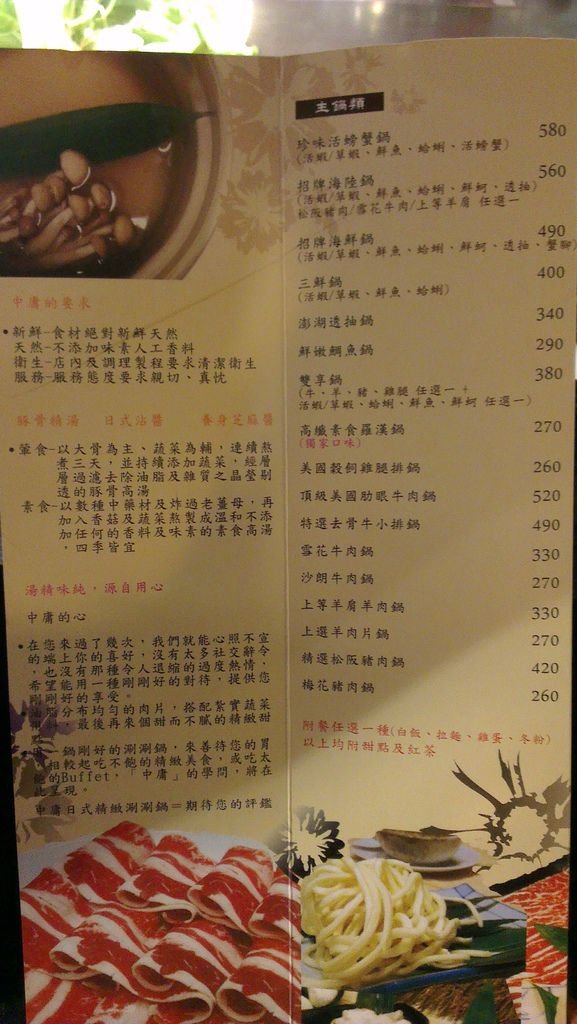 中庸的要求
•新鮮-食材絕對新鮮天然
天然-不添加味素人工香料
衛生-店內及調理製程要求清潔衛生
服務-服務態度要求親切、真忱
豚骨精湯 日式沾醬 養身芝麻醬
•葷食-以大骨為主、蔬菜為輔，連續熬
煮三天，並持續添加蔬菜，經層
層過濾去除油脂及雜質之晶瑩剔
透的豚骨高湯
素食-以數種中藥材及炸過老薑母，再
加入香菇及蔬菜熬製成溫和不添
加任何的香料及味素的素食高湯
，四季皆宜
湯精味純，源自用心
中庸的心
•在您來過了幾次，我們就能心照不宣
的端上你的喜好，沒有太多社交辭令
，也沒有那種令人退縮的過度熱情，
希望能用一種剛剛好的對待，提供您
剛剛好的享受。
油脂分布均勻的肉片，搭配紮實蔬菜
，最後再來個甜而不膩的精緻甜
點
一鍋剛好的涮涮鍋，來善待您的胃
相較起吃不飽的精緻美食，或吃太
飽的Buffet，「中庸」的學問，將在
此呈現。
中庸日式精緻涮涮鍋＝期待您的評鑑
主鍋類
珍味活螃蟹鍋 580
(活蝦/草蝦、鮮魚、蛤蜊、活螃蟹)
招牌海陸鍋 560
(活蝦/草蝦、鮮魚、蛤蜊、鮮蚵、透抽)
松阪豬肉/雪花牛肉/上等羊肩 任選一
招牌海鮮鍋 490
(活蝦/草蝦、鮮魚、蛤蜊、鮮蚵、透抽、蟹腳)
三鮮鍋 400
(活蝦/草蝦、鮮魚、蛤蜊)
澎湖透抽鍋 340
鮮嫩鯛魚鍋 290
雙享鍋 380
(牛、羊、豬、雞腿 任選一 +
活蝦/草蝦、蛤蜊、鮮魚、鮮蚵 任選一)
高纖素食羅漢鍋 270
(獨家口味)
美國穀飼雞腿排鍋 260
頂級美國肋眼牛肉鍋 520
特選去骨牛小排鍋 490
雪花牛肉鍋 330
沙朗牛肉鍋 270
上等羊肩羊肉鍋 330
上選羊肉片鍋 270
精選松阪豬肉鍋 420
梅花豬肉鍋 260
附餐任選一種(白飯、拉麵、雞蛋、冬粉)
以上均附甜點及紅茶